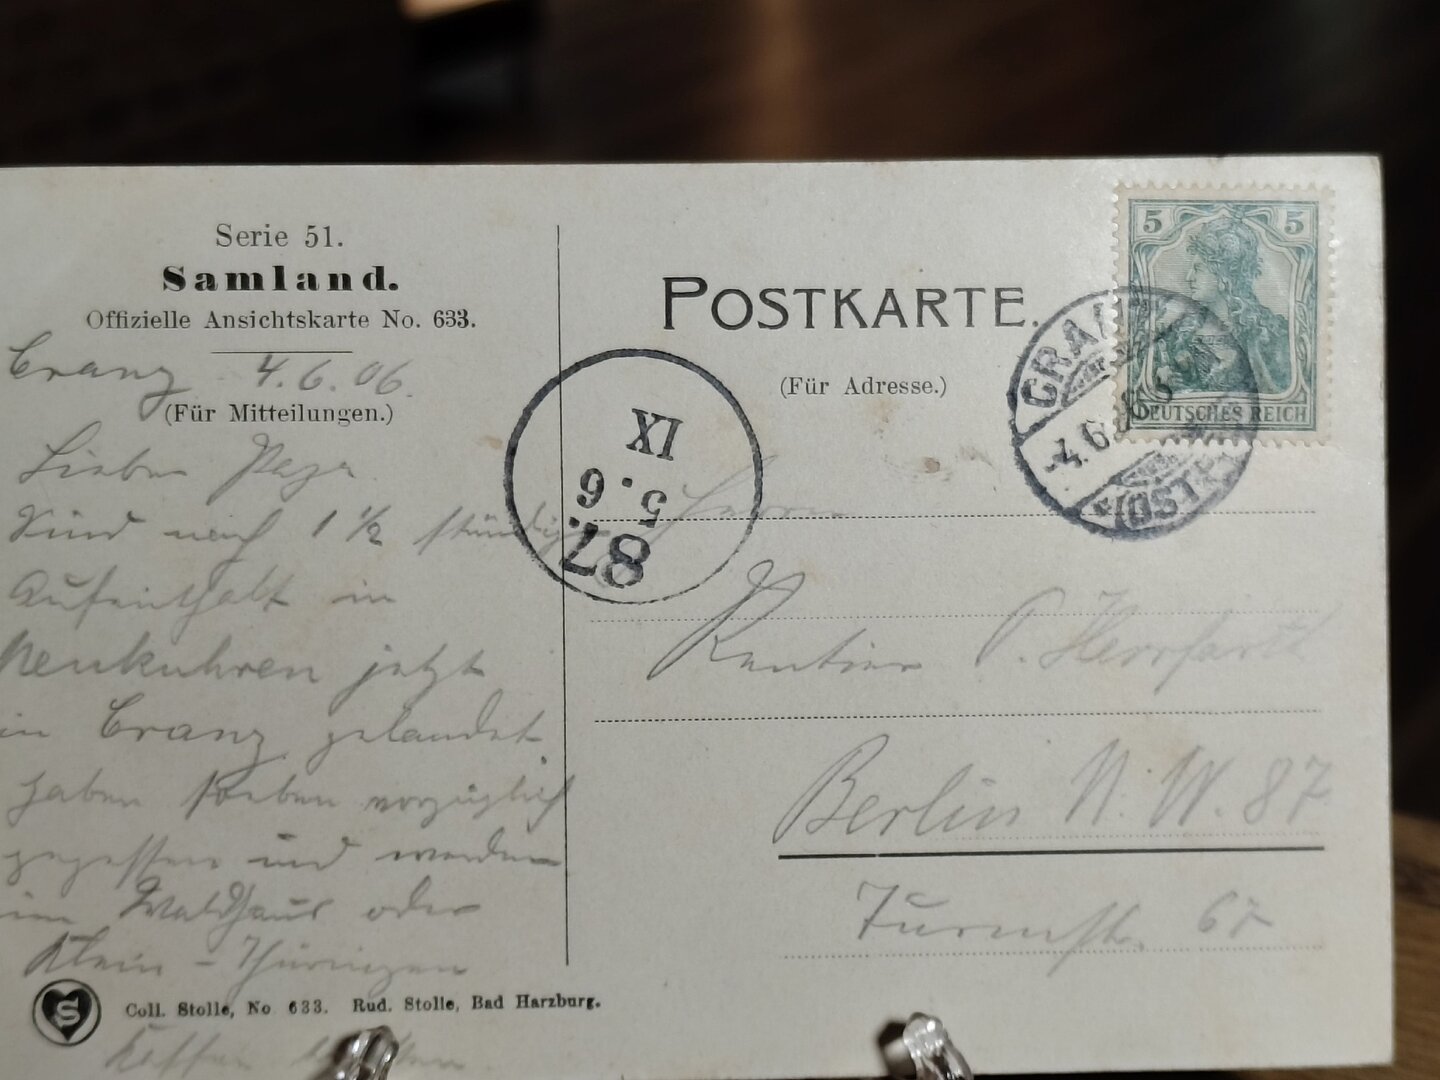 Serie 51.
Samland.
Offizielle Ansichtskarte No. 633.
Cranz 4.6.06.
(Für Mitteilungen.)
Lieber Papa
Sind nach 1 1/2 stündig
Aufenthalt in
Neukuhren jetzt
in Cranz gelandet
haben soeben vorzüglich
gegessen und werden
im Waldhaus oder
Klein-Thüringen
Kaffee
Coll. Stolle, No 633. Rud. Stolle, Bad Harzburg.
S
POSTKARTE.
(Für Adresse.)
5 5
DEUTSCHES REICH
CRANZ
4.6.
(OSTPR
IX
5.6
87.
Herrn
Rentier P. Herrfarth
Berlin N.W. 87
Turmstr. 67